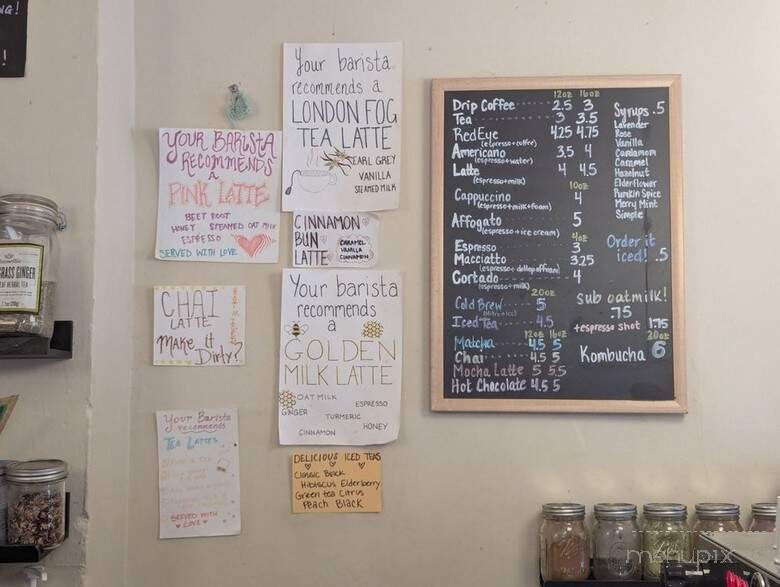 !
GRASS GINGER
Your Barista
Recommends
a
Pink Latte
Beet Root
Honey Steamed Oat Milk
Espresso
Served with Love
Chai
Latte
Make it
Dirty?
Your Barista
recommends
Tea Lattes
Served with
Love
Your barista
recommends a
London Fog
Tea Latte
Earl Grey
Vanilla
Steamed Milk
Cinnamon
Bun
Latte
Caramel
Vanilla
Cinnamon
Your barista
recommends
a
Golden
Milk Latte
Oat Milk
Espresso
Ginger
Turmeric
Honey
Cinnamon
Delicious Iced Teas
Classic Black
Hibiscus Elderberry
Green tea Citrus
Peach Black
12oz 16oz
Drip Coffee 2.5 3
Tea 3 3.5
RedEye 4.25 4.75
(espresso+coffee)
Americano 3.5 4
(espresso+water)
Latte 4 4.5
(espresso+milk)
10oz
Cappuccino 4
(espresso+milk+foam)
Affogato 5
(espresso+ice cream)
4oz
Espresso 3
Macciatto 3.25
(espresso+dollop of foam)
Cortado 4
(espresso+milk)
20oz
Cold Brew 5
Iced Tea 4.5
12oz 16oz
Matcha 4.5 5
Chai 4.5 5
Mocha Latte 5 5.5
Hot Chocolate 4.5 5
Syrups .5
Lavender
Rose
Vanilla
Cardamom
Caramel
Hazelnut
Elderflower
Pumpkin Spice
Merry Mint
Simple
Order it
iced! .5
Sub oatmilk!
.75
+espresso shot 1.75
20oz
Kombucha 6
menupix